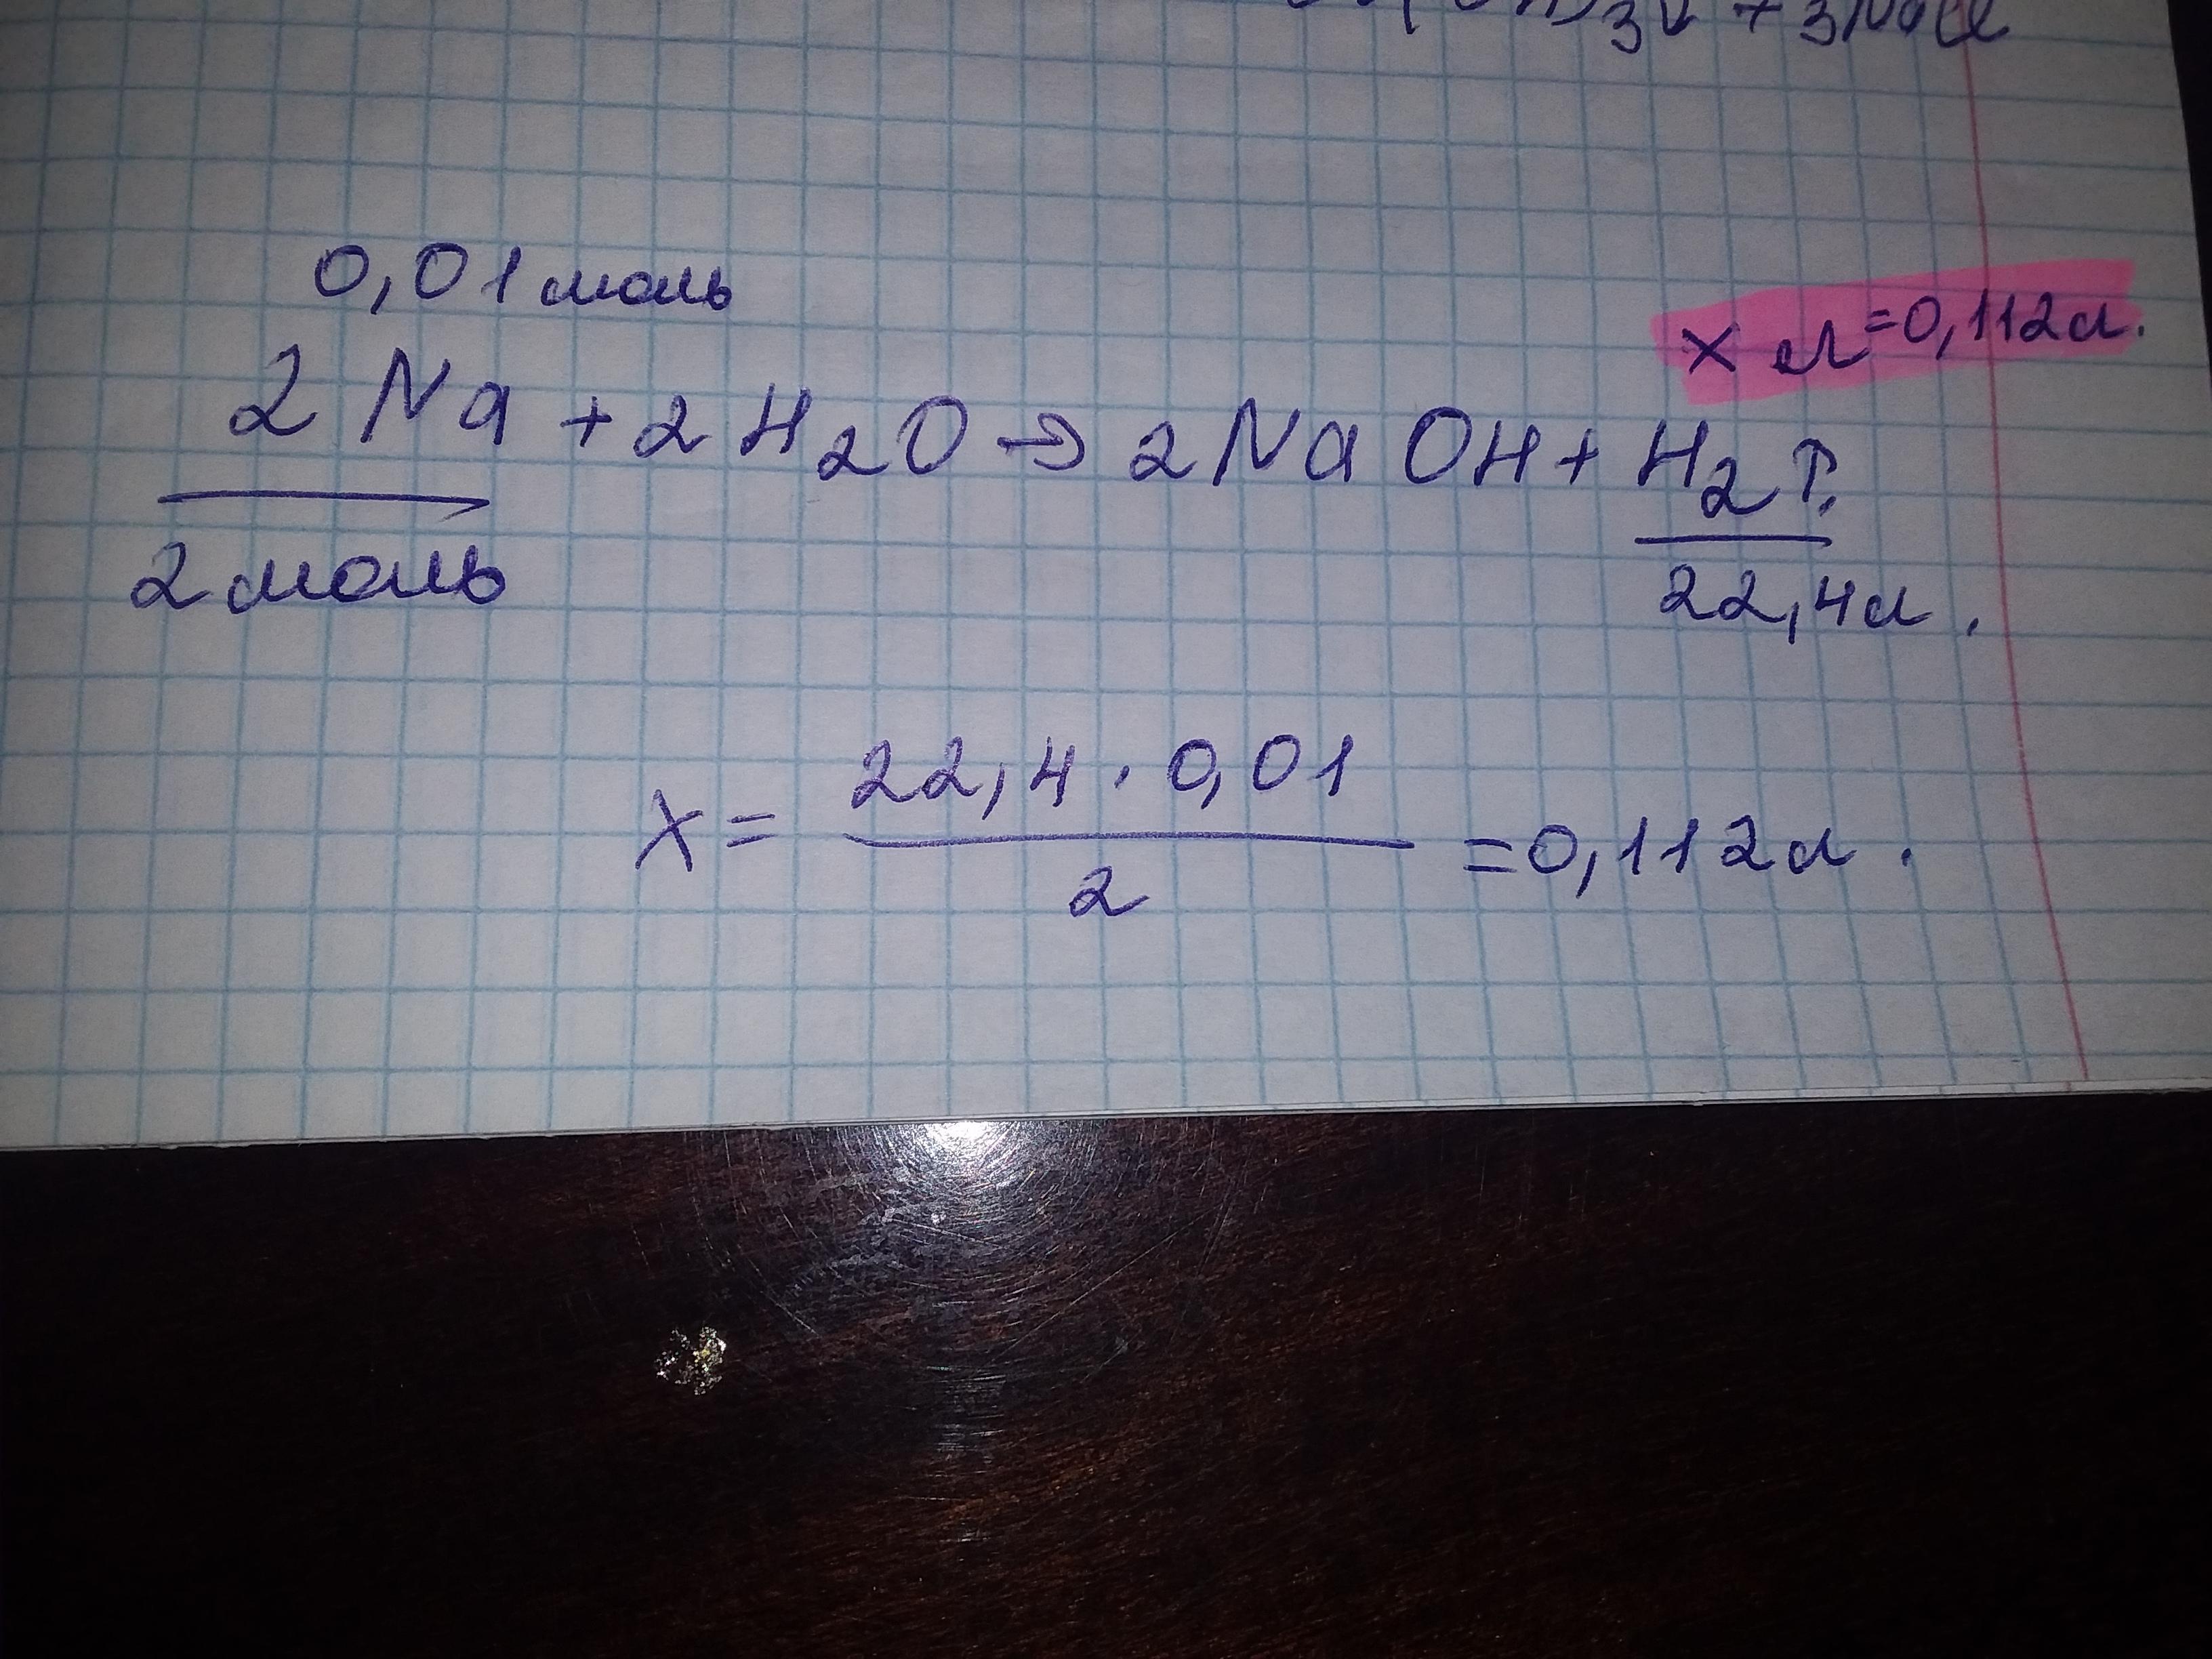 )₃↓ + 3NaCl
0,01 моль
x л = 0,112 л.
2 Na + 2 H₂O → 2 NaOH + H₂↑.
2 моль
22,4 л.
x = 22,4 · 0,01 / 2 = 0,112 л.